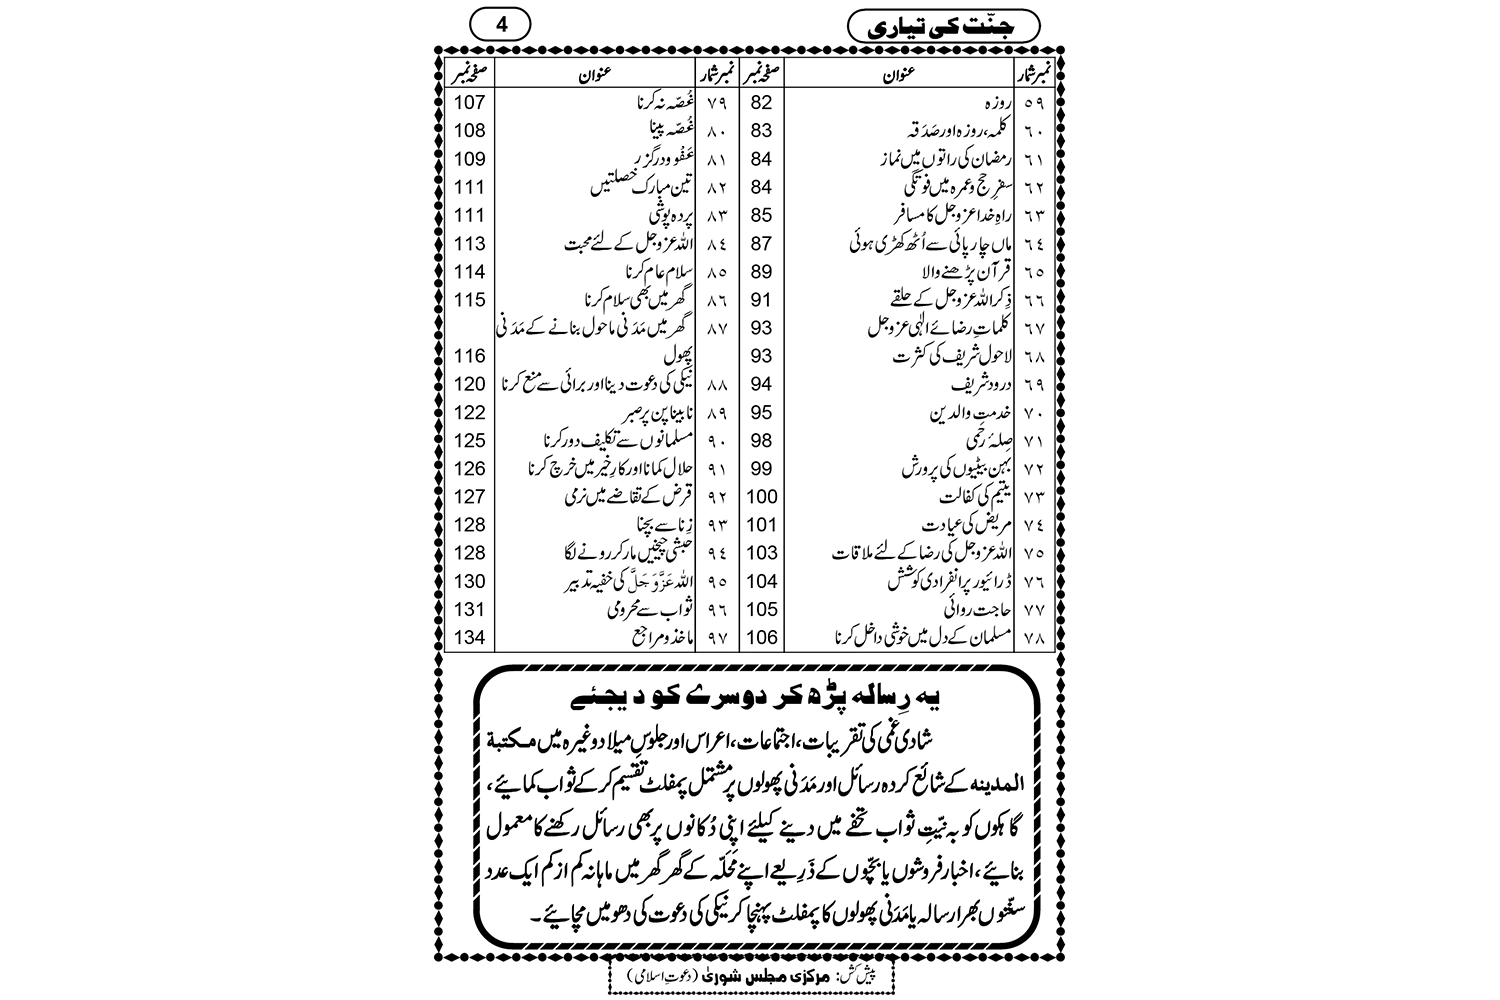 جنّت کی تیاری
4
نمبر شمار عنوان صفحہ نمبر نمبر شمار عنوان صفحہ نمبر
٥٩ روزہ 82 ٧٩ غُصّہ نہ کرنا 107
٦٠ کلمہ، روزہ اور صَدَقہ 83 ٨٠ غُصّہ پینا 108
٦١ رمضان کی راتوں میں نماز 84 ٨١ عَفْو و درگزر 109
٦٢ سفرِ حج و عمرہ میں فوتگی 84 ٨٢ تین مبارک خصلتیں 111
٦٣ راہِ خدا عزوجل کا مسافر 85 ٨٣ پردہ پوشی 111
٦٤ ماں چارپائی سے اُٹھ کھڑی ہوئی 87 ٨٤ اللہ عزوجل کے لئے محبت 113
٦٥ قرآن پڑھنے والا 89 ٨٥ سلام عام کرنا 114
٦٦ ذِکر اللہ عزوجل کے حلقے 91 ٨٦ گھر میں بھی سلام کرنا 115
٦٧ کلماتِ رضائے الٰہی عزوجل 93 ٨٧ گھر میں مَدَنی ماحول بنانے کے مَدَنی
٦٨ لاحول شریف کی کثرت 93 پھول 116
٦٩ درود شریف 94 ٨٨ نیکی کی دعوت دینا اور برائی سے منع کرنا 120
٧٠ خدمتِ والدین 95 ٨٩ نابینا پن پر صبر 122
٧١ صِلۂ رَحمی 98 ٩٠ مسلمانوں سے تکلیف دور کرنا 125
٧٢ بہن بیٹیوں کی پرورش 99 ٩١ حلال کمانا اور کارِ خیر میں خرچ کرنا 126
٧٣ یتیم کی کفالت 100 ٩٢ قرض کے تقاضے میں نرمی 127
٧٤ مریض کی عیادت 101 ٩٣ زِنا سے بچنا 128
٧٥ اللہ عزوجل کی رضا کے لئے ملاقات 103 ٩٤ حبشی چیخیں مار کر رونے لگا 128
٧٦ ڈرائیور پر انفرادی کوشش 104 ٩٥ اللہ عَزَّوَجَلَّ کی خفیہ تدبیر 130
٧٧ حاجت روائی 105 ٩٦ ثواب سے محرومی 131
٧٨ مسلمان کے دل میں خوشی داخل کرنا 106 ٩٧ ماخذ و مراجع 134
یہ رِسالہ پڑھ کر دوسرے کو دیجئے
شادی غمی کی تقریبات، اجتماعات، اعراس اور جلوسِ میلاد وغیرہ میں مکتبۃ
المدینہ کے شائع کردہ رسائل اور مَدَنی پھولوں پر مشتمل پمفلٹ تقسیم کرکے ثواب کمایئے،
گاہکوں کو بہ نیّتِ ثواب تحفے میں دینے کیلئے اپنی دُکانوں پر بھی رسائل رکھنے کا معمول
بنایئے، اخبار فروشوں یا بچّوں کے ذَرِیعے اپنے مَحَلّہ کے گھر گھر میں ماہانہ کم از کم ایک عدد
سنّتوں بھرا رسالہ یا مَدَنی پھولوں کا پمفلٹ پہنچا کر نیکی کی دعوت کی دھومیں مچایئے۔
پیش کش: مرکزی مجلس شوریٰ (دعوتِ اسلامی)